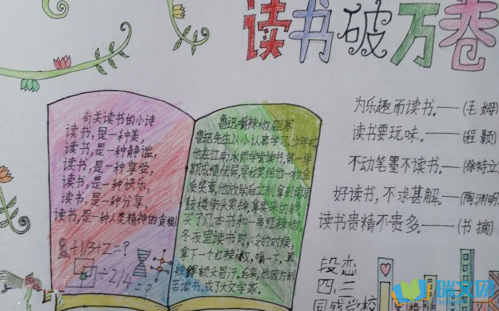 读书破万卷
有关读书的小诗
读书,是一种美,
读书,是一种静谧,
读书,是一种享受,
读书,是一种快乐,
读书,是一种分享,
读书,是一种人类精神的食粮!
1/3+2=?
÷2/4
=?
鲁迅嚼辣椒驱寒
鲁迅先生从小认真学习。少年时,
在江南水师学堂读书,第一学
期成绩优异,学校奖给他一枚金
质奖章。他立刻拿到南京
鼓楼街头卖掉,然后
买了几本书和一串红辣椒。
冬夜里读书时,冷的时候,
拿下一个红辣椒,嚼一下,
辣额头冒汗。
苦读书,成了大文学家。
为乐趣而读书。——(毛姆)
读书要玩味。——(程颢)
不动笔墨不读书。——(徐特立)
好读书,不求甚解。——(陶渊明)
读书贵精不贵多。——(书摘)
段恋
四、三
同盛学校
瑞文网